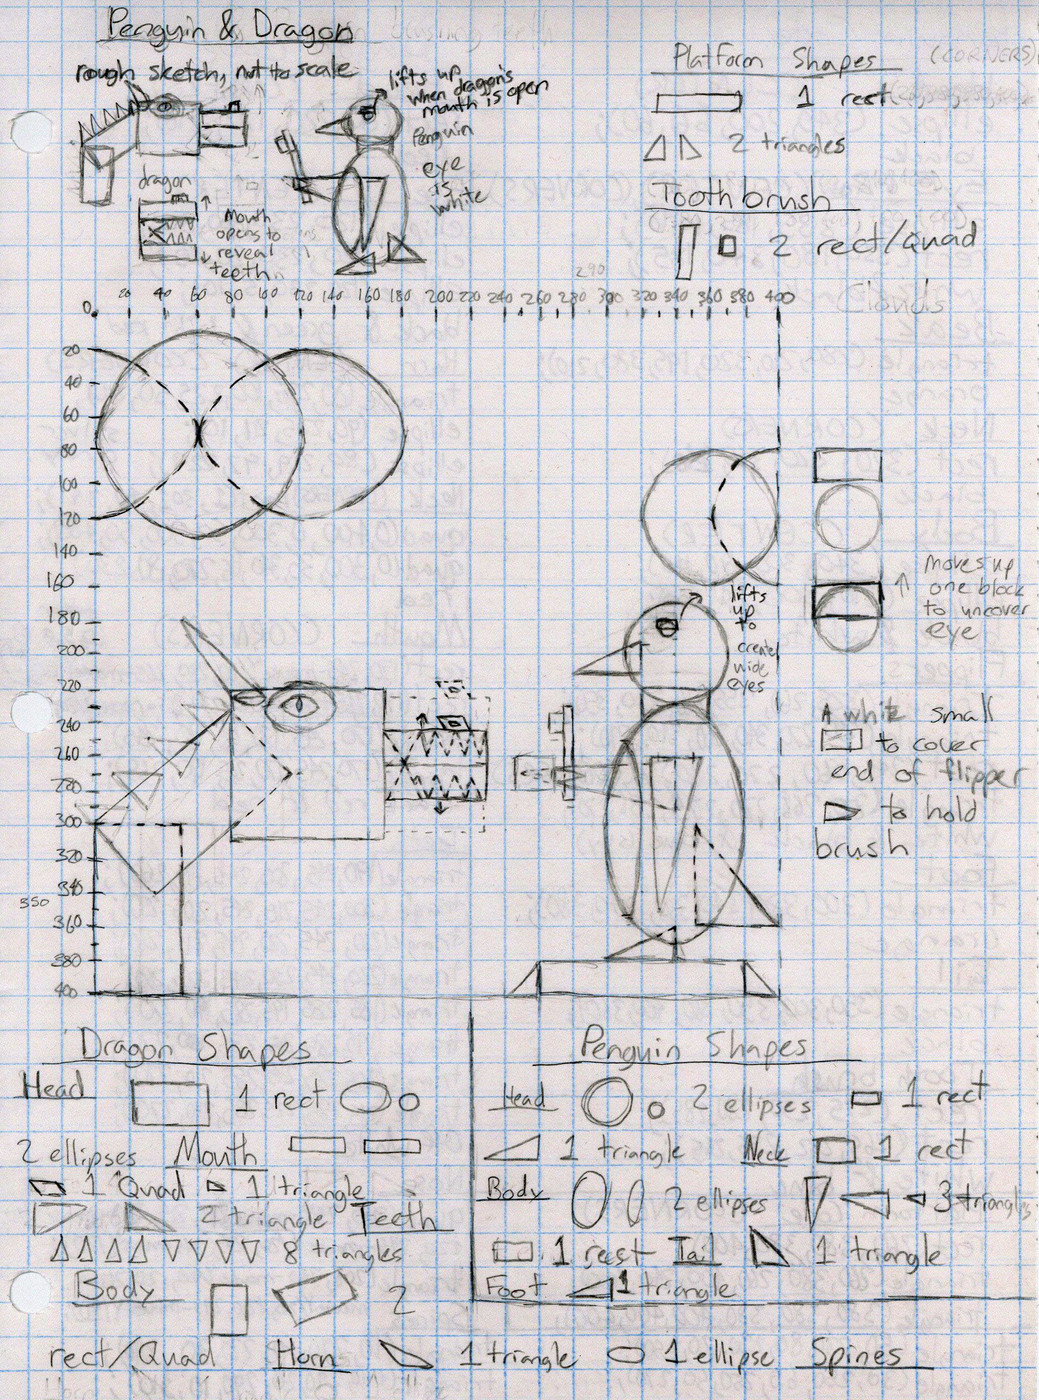 Penguin & Dragon
rough sketch, not to scale
lifts up
when dragon's
mouth is open
Penguin
eye
is
white
dragon
Mouth
opens to
reveal
teeth
Platform Shapes
(CORNERS)
1 rect
2 triangles
Toothbrush
2 rect/Quad
Clouds
290
0 20 40 60 80 100 120 140 160 180 200 220 240 260 280 300 320 340 360 380 400
20
40
60
80
100
120
140
160
180
200
220
240
260
270
280
300
320
340
350
360
380
400
lifts
up
to
create
wide
eyes
moves up
one block
to uncover
eye
white small
to cover
end of flipper
to hold
brush
Dragon Shapes
Head 1 rect
2 ellipses Mouth
1 Quad 1 triangle
2 triangle Teeth
8 triangles
Body 2
rect/Quad Horn 1 triangle 1 ellipse Spines
Penguin Shapes
Head 2 ellipses 1 rect
1 triangle Neck 1 rect
Body 2 ellipses 3 triangles
1 rect Tail 1 triangle
Foot 1 triangle